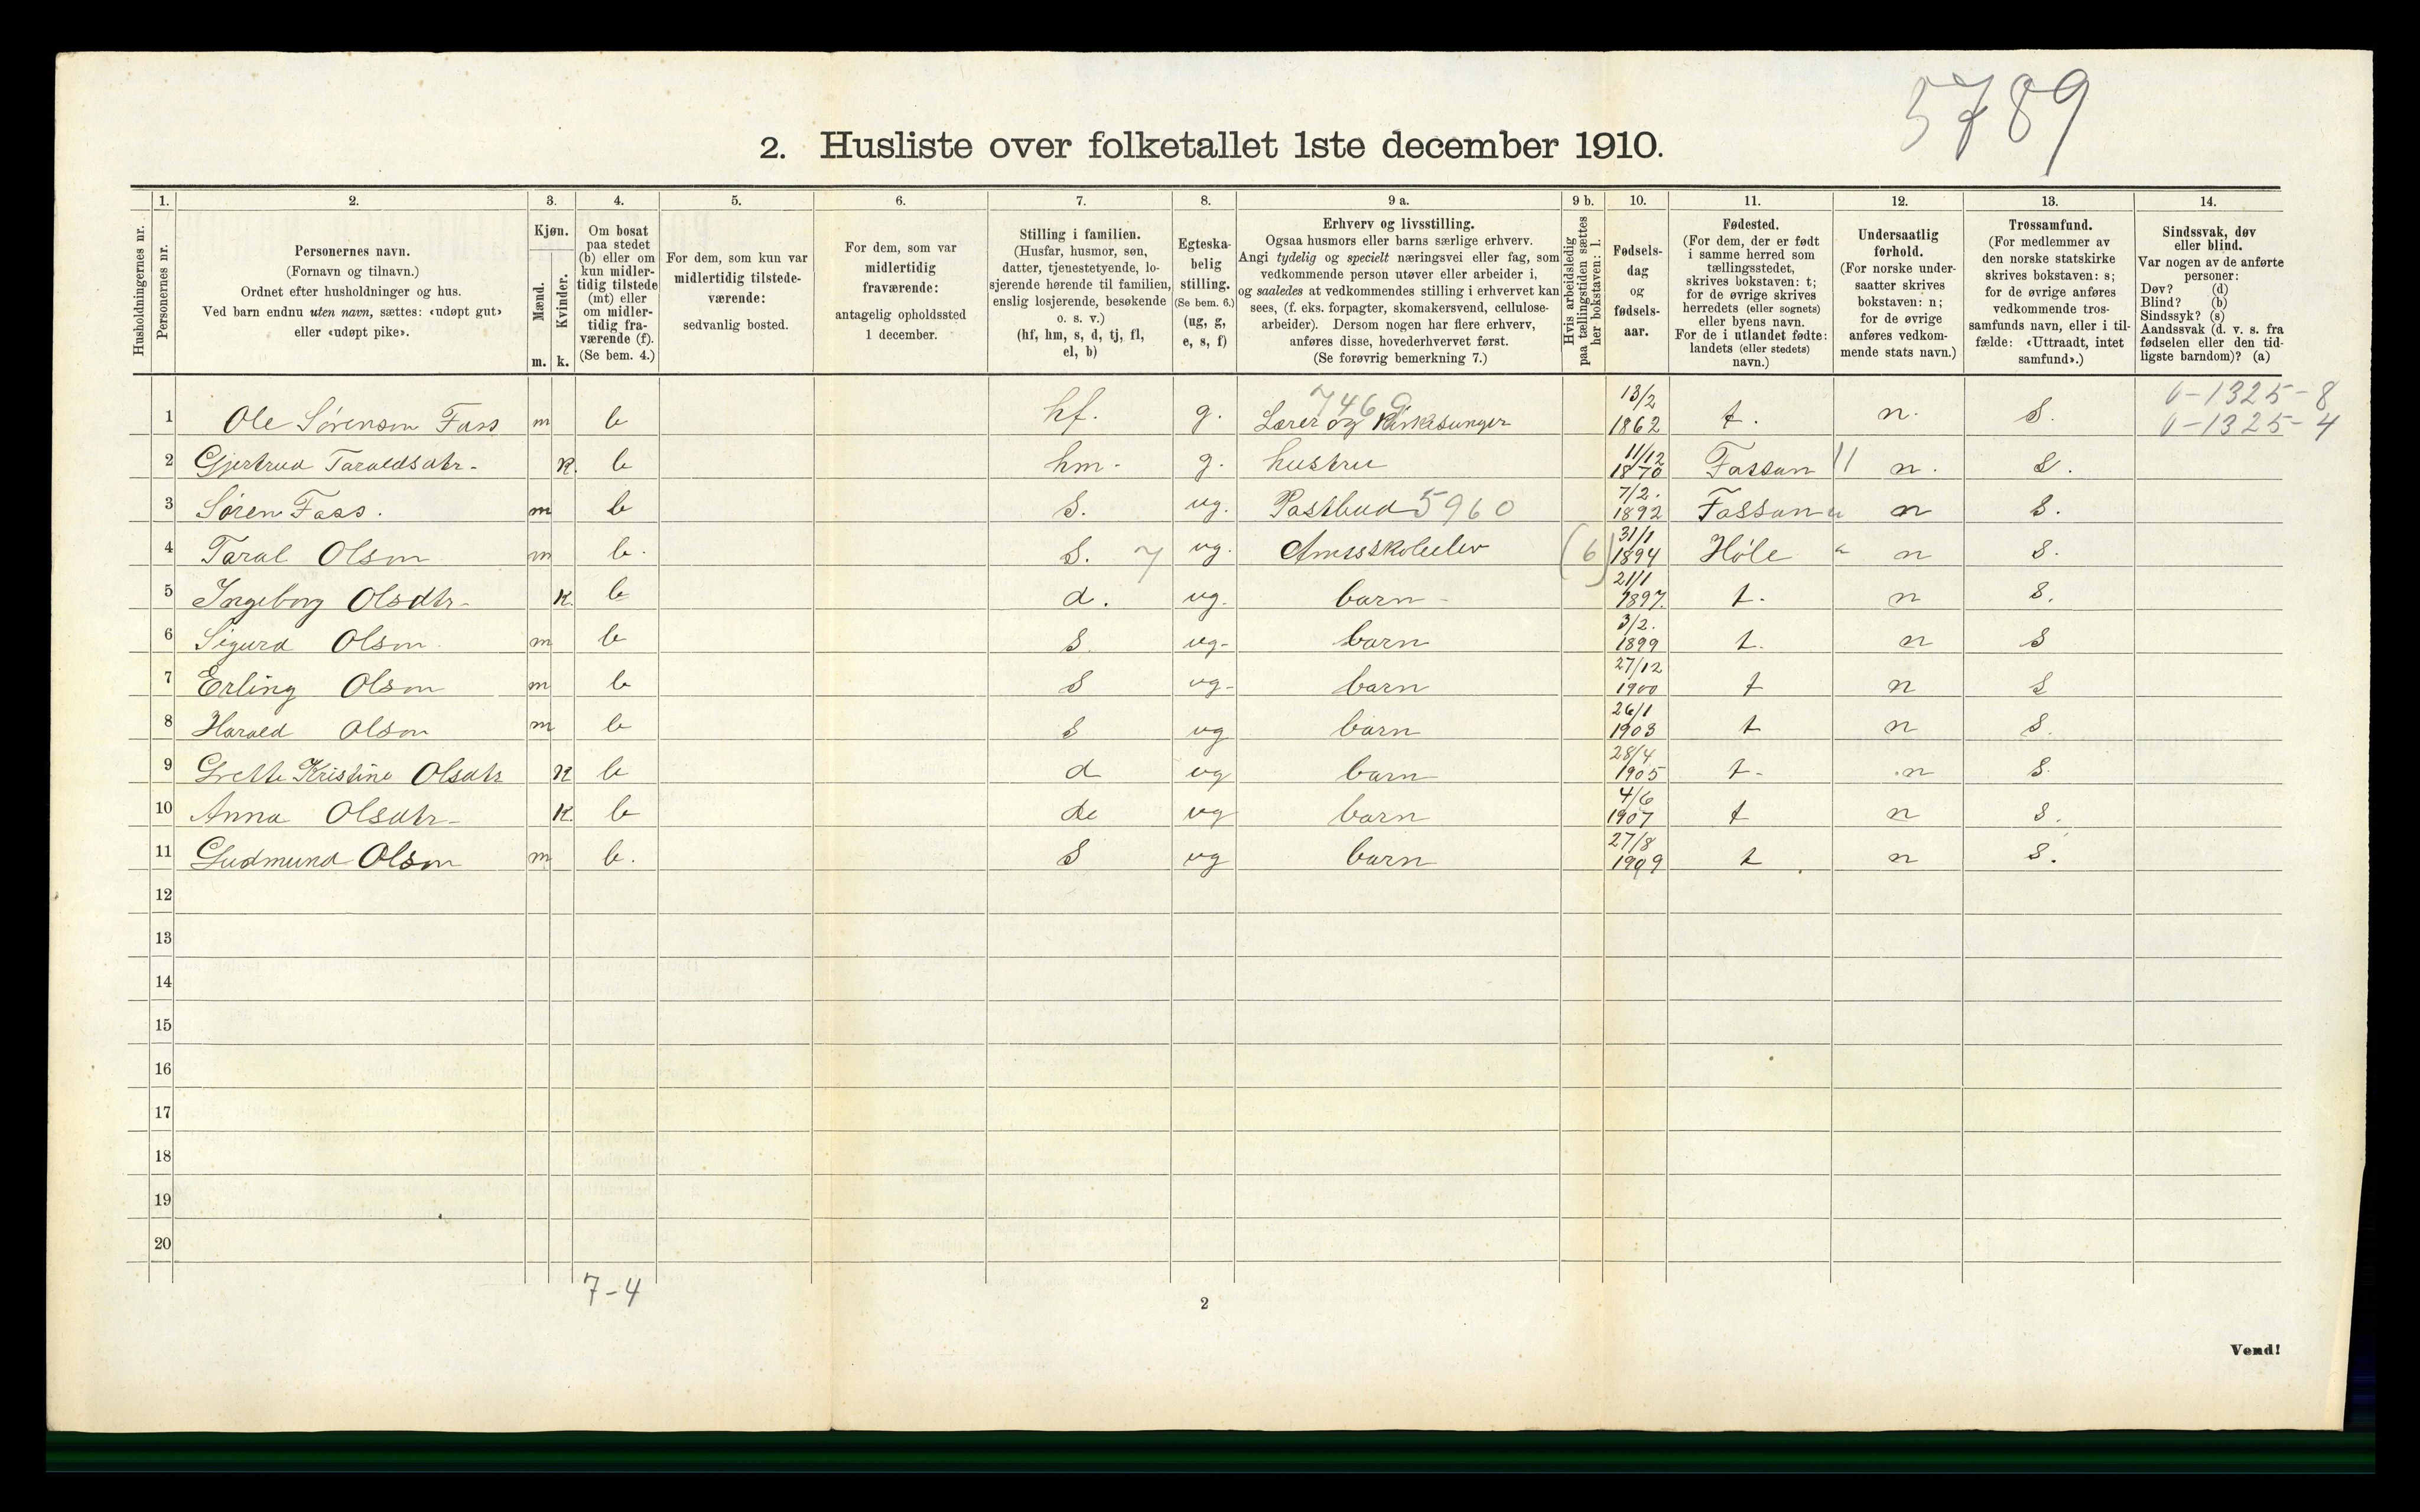 5789
2. Husliste over folketallet 1ste december 1910.
Husholdningernes nr.
1. Personernes nr.
2. Personernes navn. (Fornavn og tilnavn.) Ordnet efter husholdninger og hus. Ved barn endnu uten navn, sættes: «udøpt gut» eller «udøpt pike».
3. Kjøn. Mænd. m. Kvinder. k.
4. Om bosat paa stedet (b) eller om kun midlertidig tilstede (mt) eller om midlertidig fraværende (f). (Se bem. 4.)
5. For dem, som kun var midlertidig tilstedeværende: sedvanlig bosted.
6. For dem, som var midlertidig fraværende: antagelig opholdssted 1 december.
7. Stilling i familien. (Husfar, husmor, søn, datter, tjenestetyende, losjerende hørende til familien, enslig losjerende, besøkende o. s. v.) (hf, hm, s, d, tj, fl, el, b)
8. Egteskabelig stilling. (Se bem. 6.) (ug, g, e, s, f)
9 a. Erhverv og livsstilling. Ogsaa husmors eller barns særlige erhverv. Angi tydelig og specielt næringsvei eller fag, som vedkommende person utøver eller arbeider i, og saaledes at vedkommendes stilling i erhvervet kan sees, (f. eks. forpagter, skomakersvend, cellulosearbeider). Dersom nogen har flere erhverv, anføres disse, hovederhvervet først. (Se forøvrig bemerkning 7.)
9 b. Hvis arbeidsledig paa tællingstiden sættes her bokstaven: l.
10. Fødselsdag og fødselsaar.
11. Fødested. (For dem, der er født i samme herred som tællingsstedet, skrives bokstaven: t; for de øvrige skrives herredets (eller sognets) eller byens navn. For de i utlandet fødte: landets (eller stedets) navn.)
12. Undersaatlig forhold. (For norske undersaatter skrives bokstaven: n; for de øvrige anføres vedkommende stats navn.)
13. Trossamfund. (For medlemmer av den norske statskirke skrives bokstaven: s; for de øvrige anføres vedkommende trossamfunds navn, eller i tilfælde: «Uttraadt, intet samfund».)
14. Sindssvak, døv eller blind. Var nogen av de anførte personer: Døv? (d) Blind? (b) Sindssyk? (s) Aandssvak (d. v. s. fra fødselen eller den tidligste barndom)? (a)
1 Ole Sørenson Fass m b hf. g. Lærer og Kirkesunger 13/2 1862 t. n. S. 0-1325-8 0-1325-4
2 Gjertrud Taraldsdtr- K. b hm- g. hustru 11/12 1870 Fossan 11 n. S.
3 Søren Fass. m b S. ug. Postbud 5960 7/2. 1892 Fossan " n S.
4 Taral Olson m b. S. 7 ug. Amtsskoleelev (6) 31/1 1894 Høle " n S.
5 Ingeborg Olsdtr- K. b d. ug. barn 21/1 1897. t. n S.
6 Sigurd Olson m b S. ug- barn 3/2. 1899 t. n S
7 Erling Olson m b S ug- barn 27/12 1900 t n S
8 Harald Olson m b S ug barn 26/1 1903 t n S.
9 Grette Kristine Olsdtr K b d ug barn 28/4 1905 t- n S.
10 Anna Olsdtr- K. b de ug barn 4/6 1907 t n S.
11 Gudmund Olson m b. S ug barn 27/8 1909 t n S.
12
13
14
15
16
17
18
19
20
7-4
2
Vend!